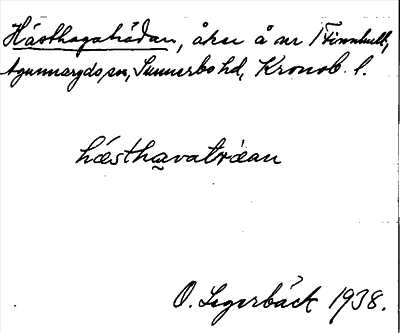 Hästhagaträdan, åker å nr 1 Finnhult,
Agunnaryds sn, Sunnerbo hd, Kronob. l.
hästhavaträan
O. Lagerbäck 1938.